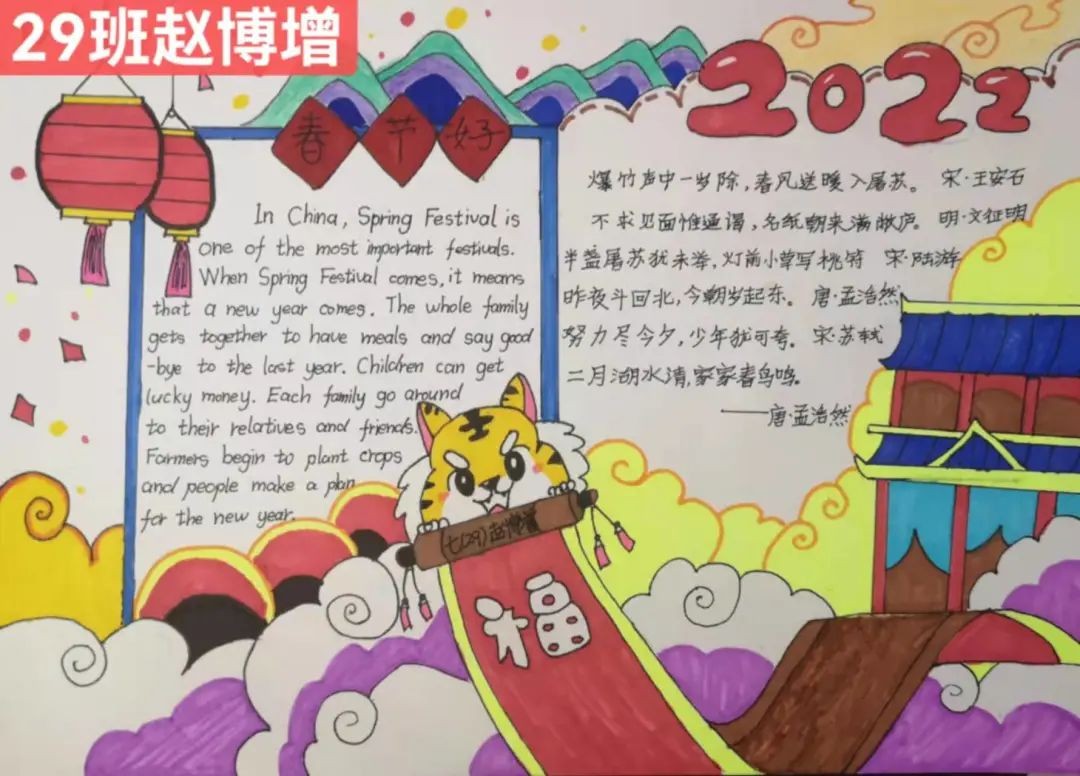 29班赵博增
春节好
In China, Spring Festival is
one of the most important festivals.
When Spring Festival comes, it means
that a new year comes. The whole family
gets together to have meals and say good
-bye to the last year. Children can get
lucky money. Each family go around
to their relatives and friends.
Farmers begin to plant crops
and people make a plan
for the new year.
2022
爆竹声中一岁除,春风送暖入屠苏。 宋·王安石
不求见面惟通谒,名纸朝来满敝庐。明·文征明
半盏屠苏犹未举,灯前小草写桃符 宋·陆游
昨夜斗回北,今朝岁起东。唐·孟浩然
努力尽今夕,少年犹可夸。宋·苏轼
二月湖水清,家家春鸟鸣。
——唐·孟浩然
(七(29)赵博增
福